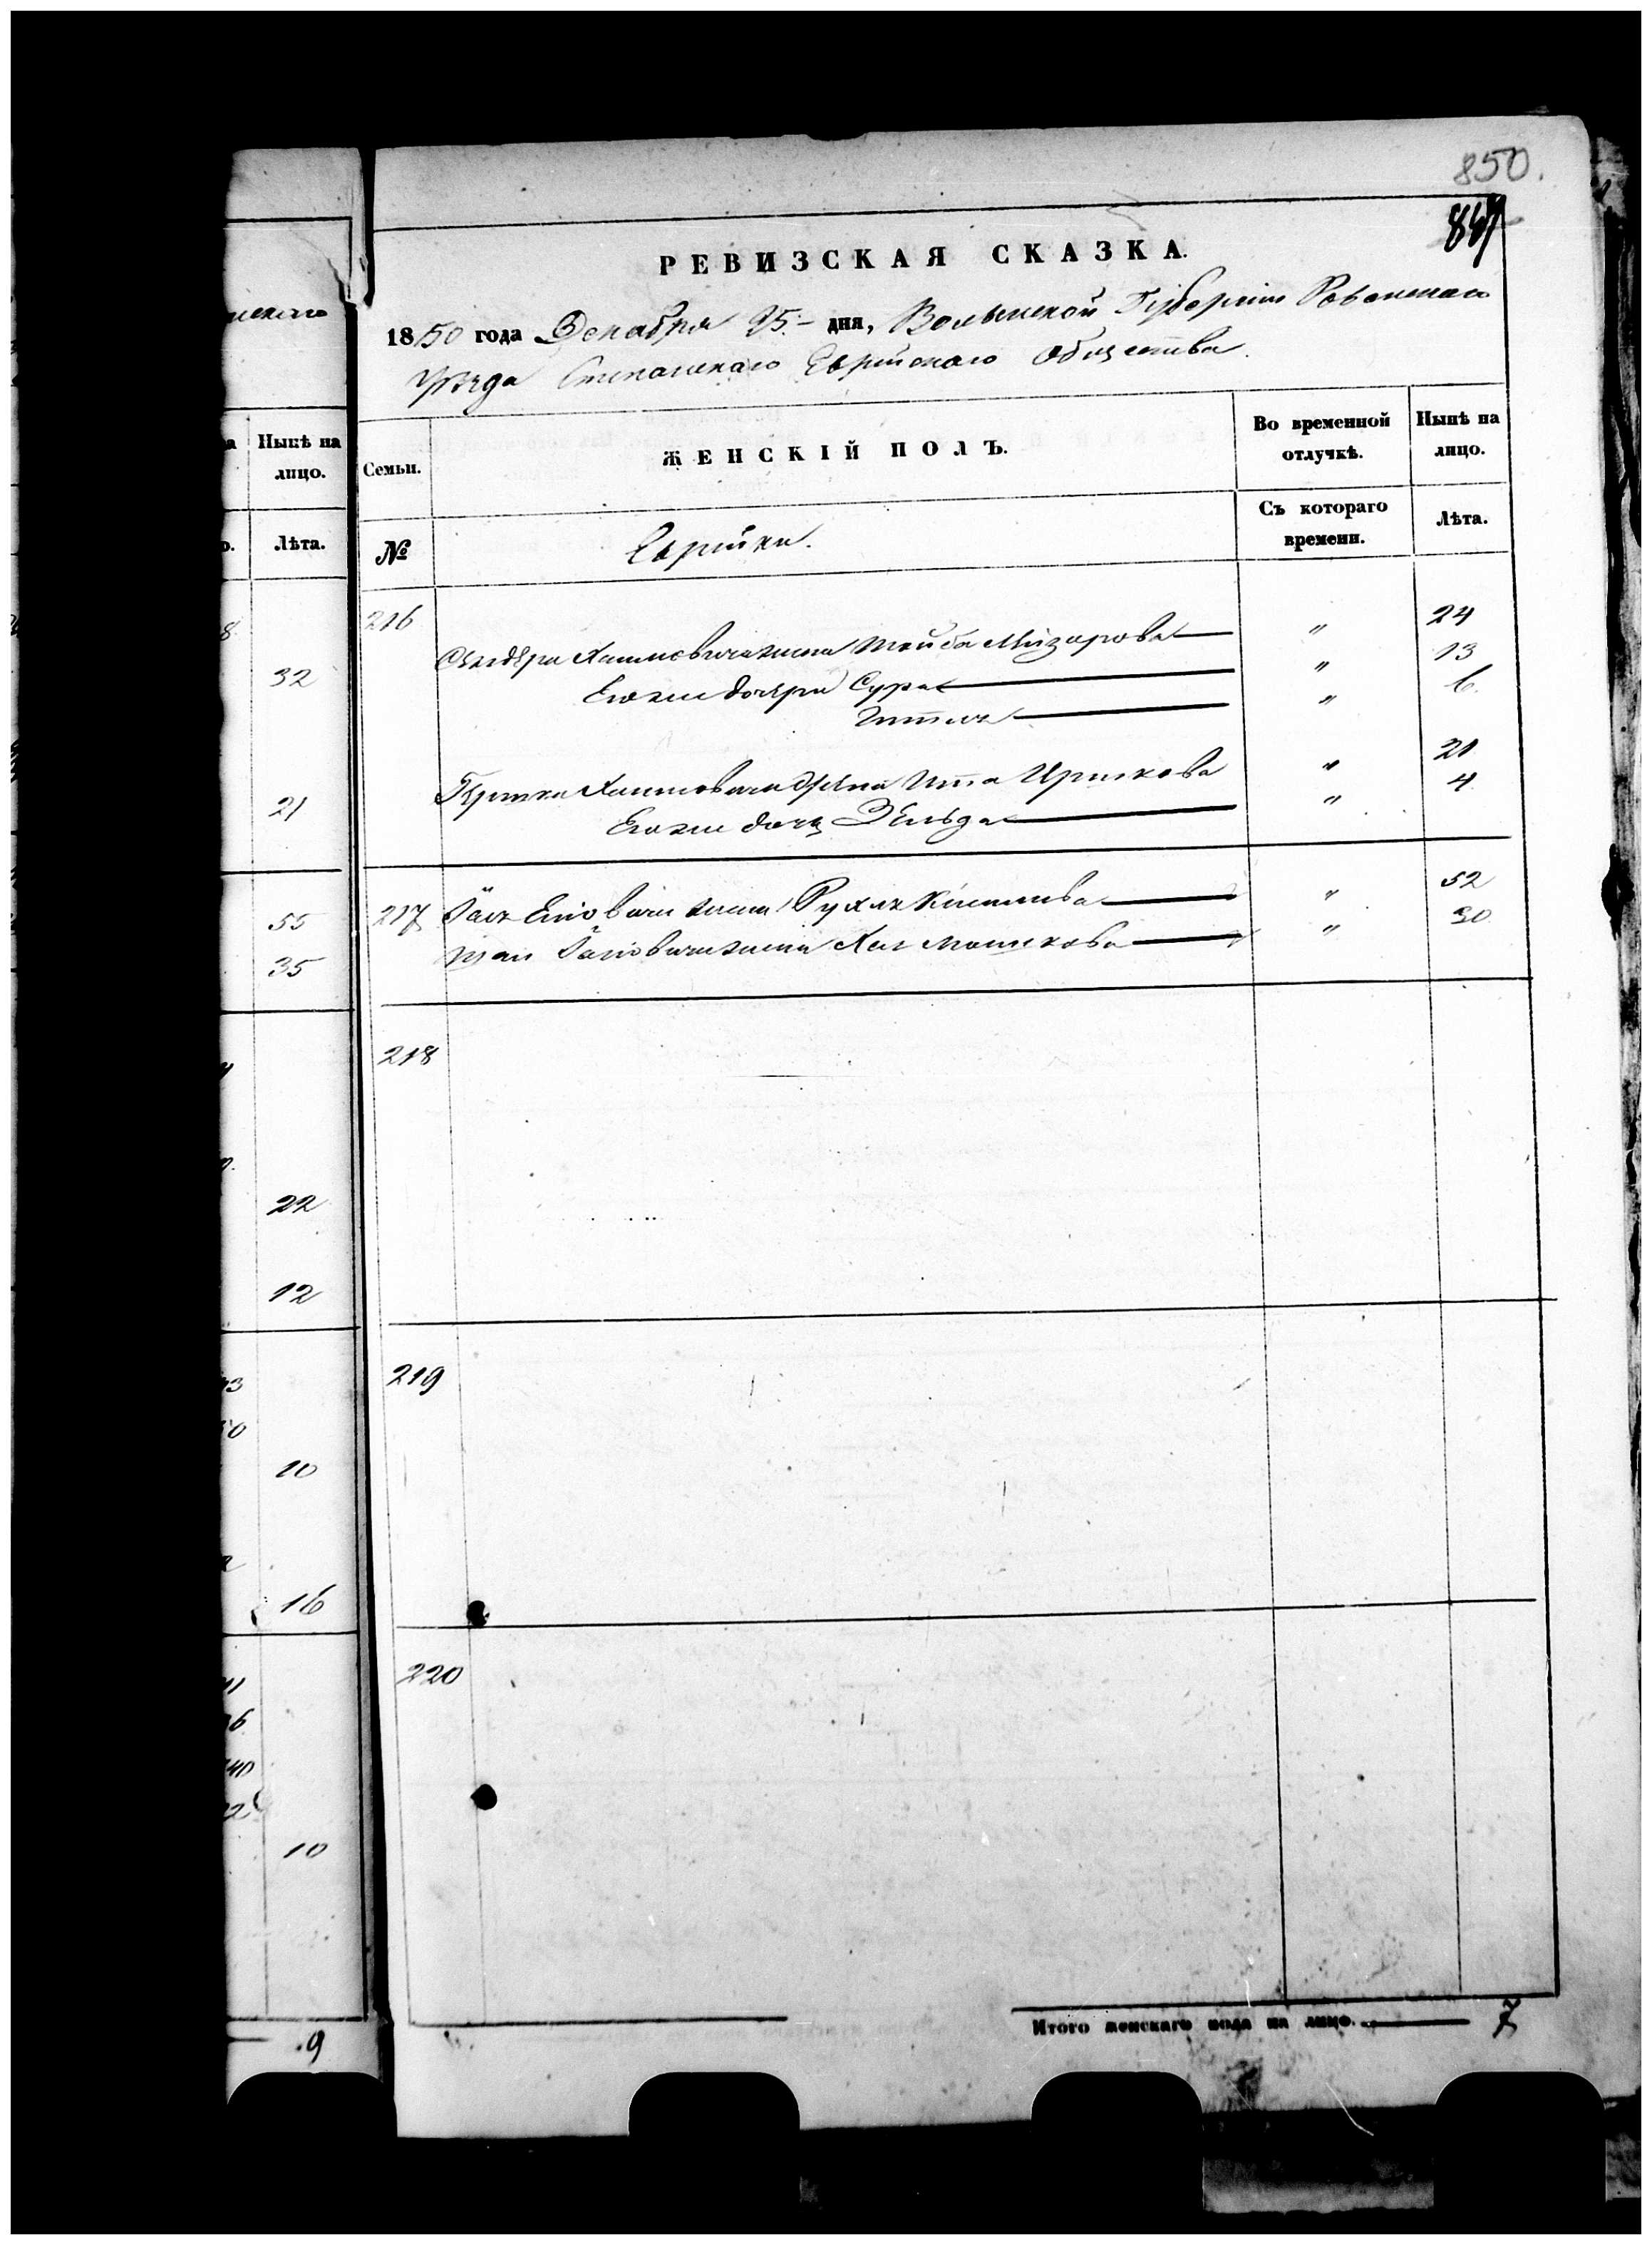 850.
847
РЕВИЗСКАЯ СКАЗКА.
1850 года Декабря 25 - дня, Волынской Губернiи Ровенскаго
Уѣзда Степанскаго Еврейскаго Общества.
Нынѣ на лицо.
Лѣта.
Семьи.
ЖЕНСКІЙ ПОЛЪ.
Во временной отлучкѣ.
Нынѣ на лицо.
№
Еврейки.
Съ котораго времени.
Лѣта.
216
Хаимовича жена Тойба " 24
Его же дочери Сура " 13
Гитля " 6.
Хаимовича жена Ита Иршкова " 21
Его же дочь Зельда " 4
217 жена Рухля " 52
жена Хая Мошкова " 30
218
219
220
32
21
55
35
22
12
10
16
10
9
Итого женскаго пола на лицо. 7